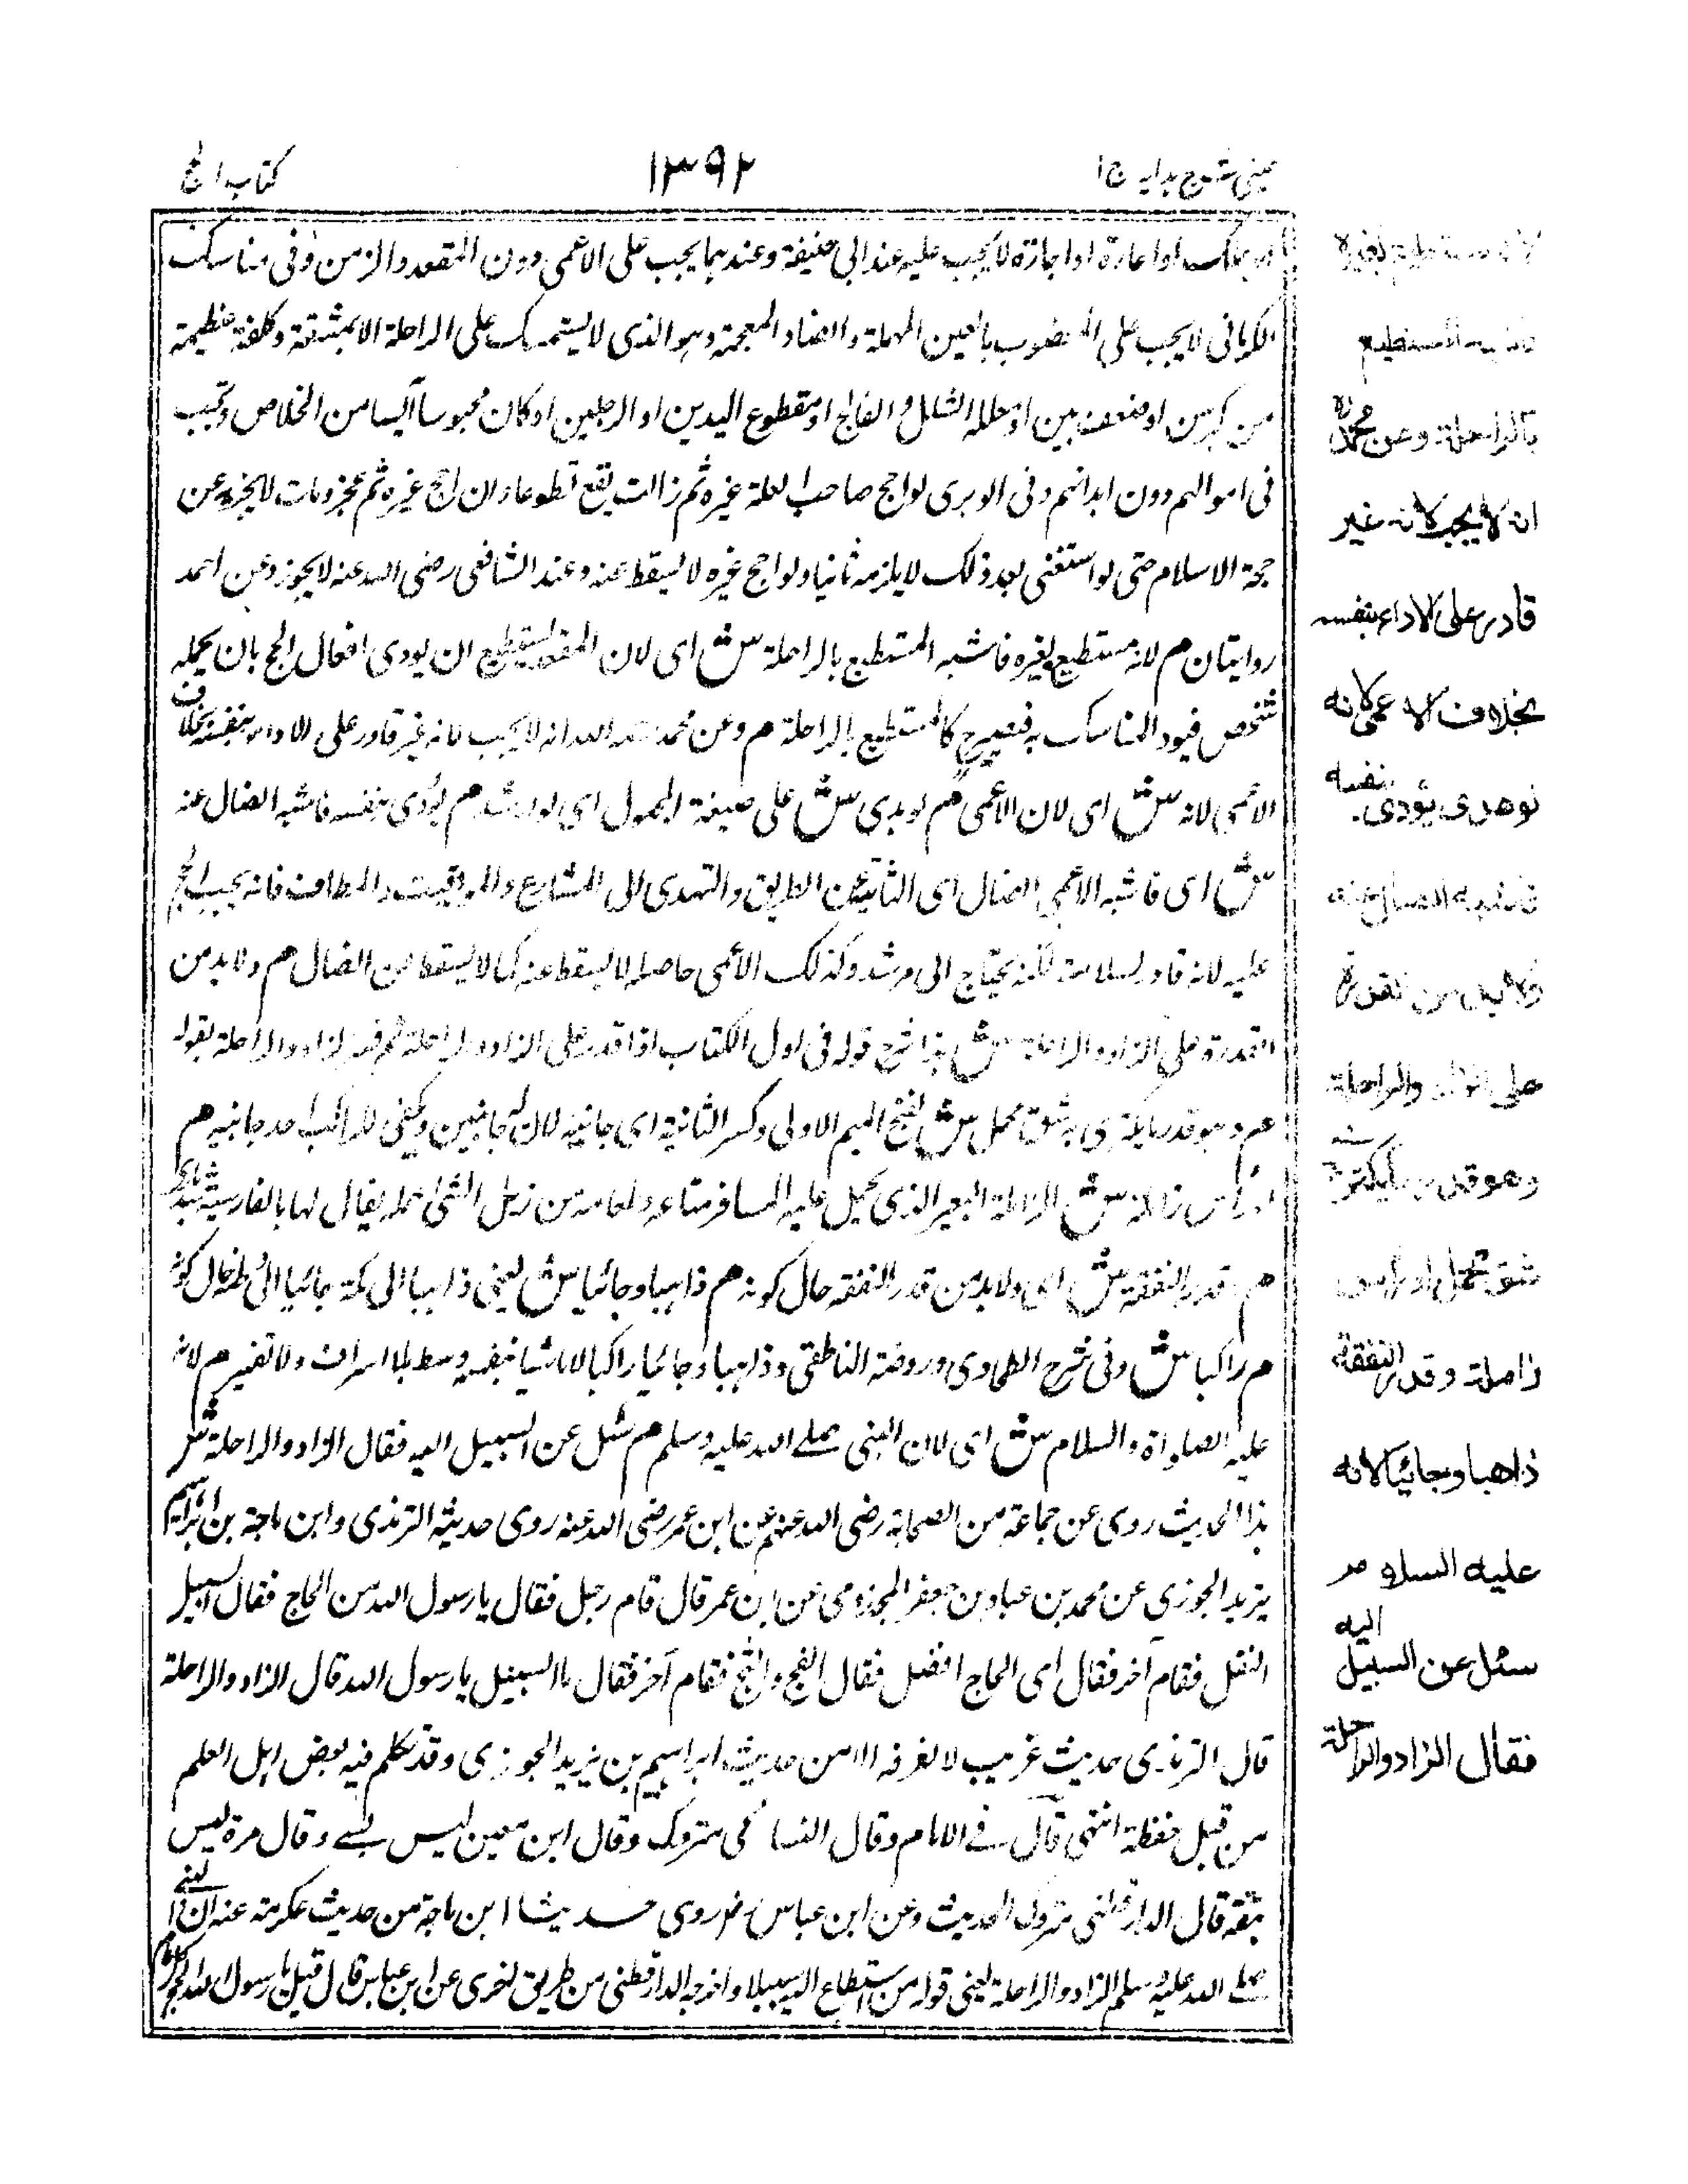 عینی شرح ہدایہ ج ۱
۱۳۹۲
کتاب الحج
او بملک او اعارة او اجازة لا یجب علیہ عند ابی حنیفة وعندہما یجب علی الاعمی دون المقعد والزمن وفی مناسک
الکرمانی لا یجب علی المعضوب بالعین المهملة والضاد المعجمة وہو الذی لا یستمسک علی الراحلة الا بمشقة وکلفة عظیمة
من کبر سن او ضعف بین او لعلة الشلل والفالج او مقطوع الیدین او الرجلین او کان محبوسا آئسا من الخلاص وتجب
فی اموالہم دون ابدانہم وفی الوبری لو احج صاحب العلة غیرہ ثم زالت یقع تطوعا وان احج غیرہ ثم عجز ومات لا یجزیہ عن
حجة الاسلام حتی لو استغنی بعد ذلک لا یلزمہ ثانیا ولو احج غیرہ لا یسقط عنہ وعند الشافعی رضی اللہ عنہ لا یجوز وعن احمد
روایتان م لانہ مستطیع بغیرہ فاشبہ المستطیع بالراحلة ش ای لان المقعد یستطیع ان یودی افعال الحج بان یحملہ
شخص فیود المناسک بہ فیصیر کالمستطیع بالراحلة م وعن محمد رحمہ اللہ انہ لا یجب لانہ غیر قادر علی الاداء بنفسہ بخلاف
الاعمی لانہ ش ای لان الاعمی م لو ہدی ش علی صیغة المجہول ای لو ارشد م یؤدی بنفسہ فاشبہ الضال عنہ
ش ای فاشبہ الاعمی الضال ای التائہ عن الطریق والتہدی الی المشارع والمواقیت والمطاف فانہ یجب الحج
علیہ لانہ قادر لسلامتہ لکنہ یحتاج الی مرشد وکذلک الاعمی حاصلہ لا یسقط عنہ کما لا یسقط من الضال م ولا بد من
القدرة علی الزاد والراحلة ش ہذا شرح قولہ فی اول الکتاب اذا قدر علی الزاد والراحلة ثم فسر الزاد والراحلة بقولہ
م وہو قدر ما یکتری بہ شق محمل ش بفتح المیم الاولی وکسر الثانیة ای جانبیہ لان لہ جانبین ویکفی للراکب احد جانبیہ م
او راس زاملة ش الزاملة البعیر الذی یحمل علیہ المسافر متاعہ وطعامہ من زمل الشئ حملہ یقال لہا بالفارسیة
م وقدر النفقة ش ای ولا بد من قدر النفقة حال کونہ م ذاہبا وجائیا ش یعنی ذاہبا الی مکة جائیا الی وطنہ حال کونہ
م راکبا ش وفی شرح الطحاوی وروضة الناطفی وذاہبا وجائیا راکبا لا ماشیا بنفقة وسط بلا اسراف ولا تقتیر م لانہ
علیہ الصلوة والسلام ش ای لان النبی صلے اللہ علیہ وسلم م سئل عن السبیل الیہ فقال الزاد والراحلة ش
ہذا الحدیث روی عن جماعة من الصحابة رضی اللہ عنہم عن ابن عمر رضی اللہ عنہ روی حدیثہ الترمذی وابن ماجة بن ابراہیم
یزید الجوزی عن محمد بن عباد بن جعفر المخزومی عن ابن عمر قال قام رجل فقال یا رسول اللہ من الحاج فقال السبیل
التفل فقام آخر فقال ای الحاج افضل فقال العج والثج فقام آخر فقال ما السبیل یا رسول اللہ قال الزاد والراحلة
قال الترمذی حدیث غریب لا نعرفہ الا من حدیث ابراہیم بن یزید الجوزی وقد تکلم فیہ بعض اہل العلم
من قبل حفظہ انتہی قال فے الامام وقال النسائی متروک وقال ابن معین لیس بشے وقال مرة لیس
بثقة قال الدارقطنی متروک الحدیث وعن ابن عباس رضہ روی حدیثا ابن ماجة من حدیث عکرمة عنہ ان النبی
صلے اللہ علیہ وسلم الزاد والراحلة یعنی قولہ من استطاع الیہ سبیلا واخرجہ الدارقطنی من طریق اخری عن ابن عباس قال قیل یا رسول اللہ الحج کل عام
لانه مستطيع بغيره
فاشبه المستطيع
بالراحلة وعن محمدؒ
انه لا يجب لانه غير
قادر على الاداء بنفسه
بخلاف الاعمى لانه
لوهدى يؤدى بنفسه
فاشبه الضال عنه
ولا بد من القدرة
على الزاد والراحلة
وهو قدر ما يكترى به
شق محمل او راس
زاملة وقدر النفقة
ذاهبا وجائيا لانه
عليه السلام
سئل عن السبيل اليه
فقال الزاد والراحلة